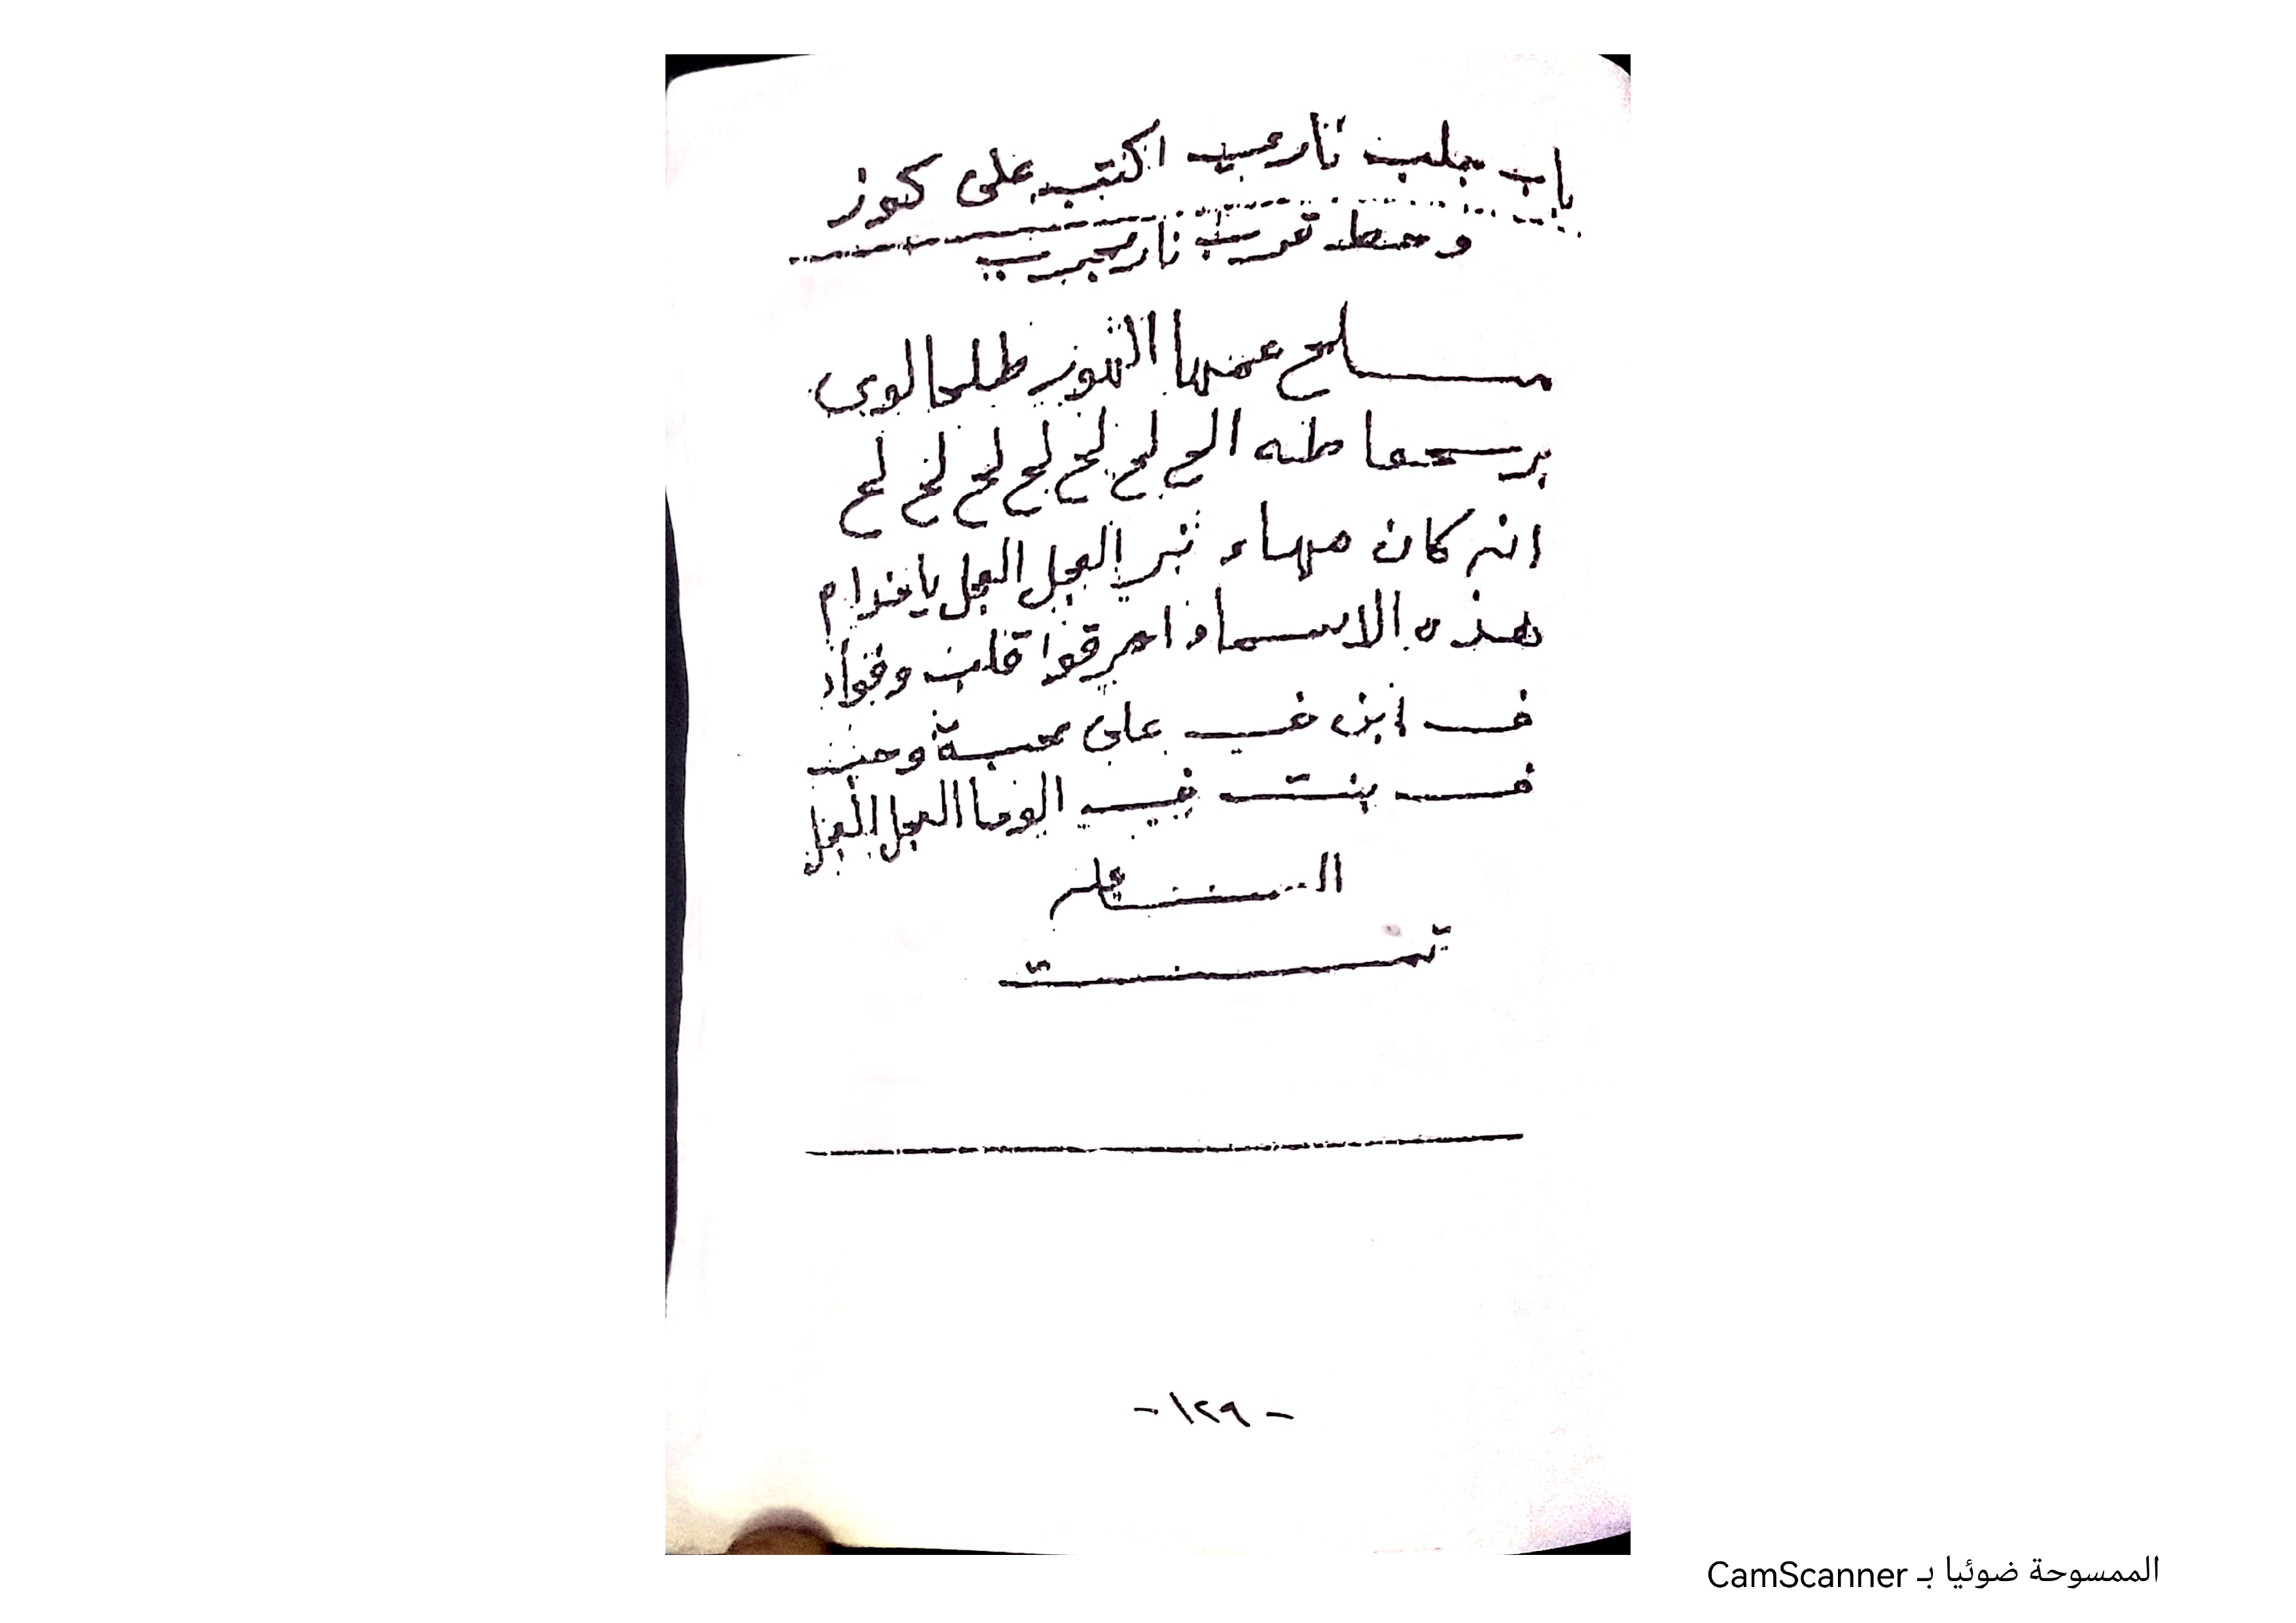 باب جلب نار عجيب اكتب على كوز
وحط قرب نار مجرب
مسلح عمنها النور طلحا لوى
برسحفا طنه الح لح لح لح لح لح لح
انه كان مهاء نبر العجل العجل يا خدام
هذه الاسماء احرقوا قلب وفؤاد
فـ ابن فـ على محبة وحب
فـ بنت فـ الوحا العجل العجل
تمت
- ١٢٩ -
الممسوحة ضوئيا بـ CamScanner